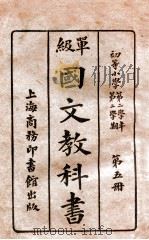 初等小學
第二學年
第二學期
第五冊
單級
國文教科書
上海商務印書館出版